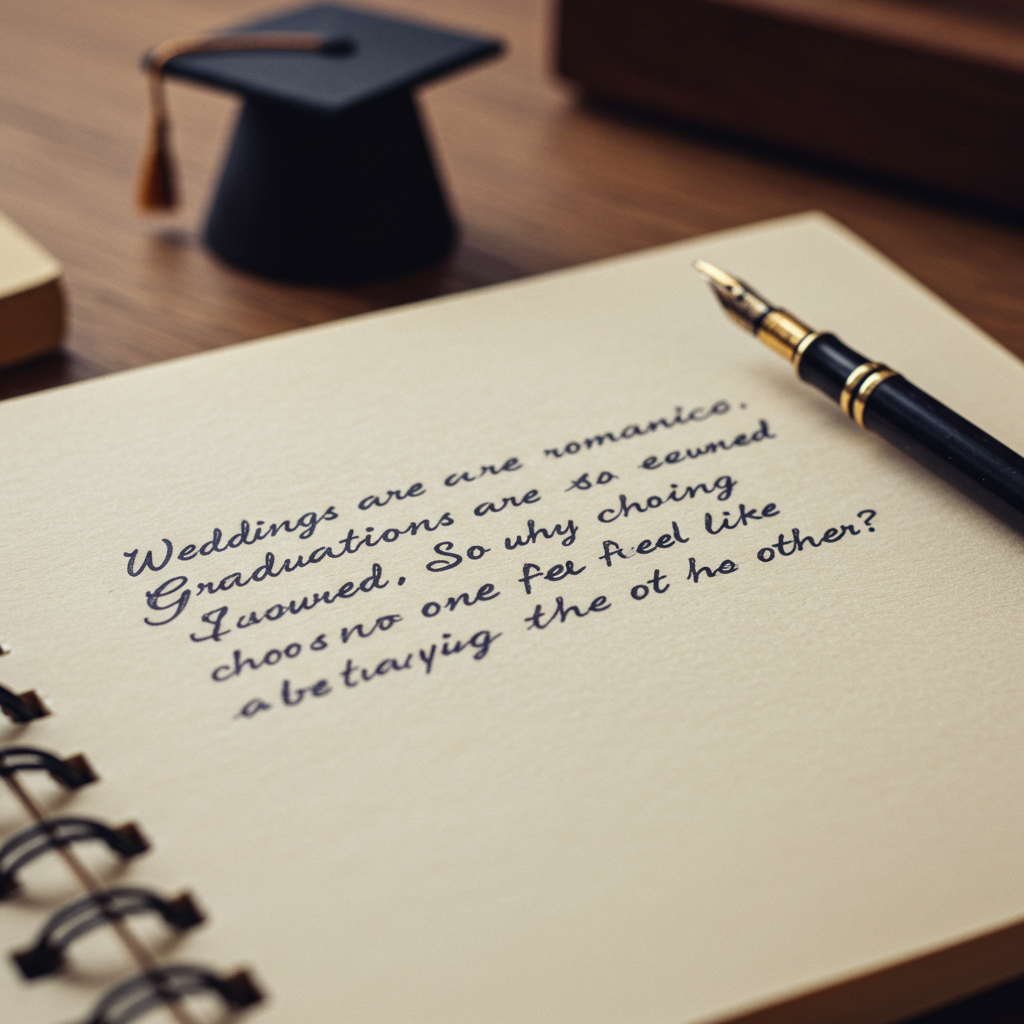 Weddings are are romanico.
Graduations are so eeuned
Iuouured. So why choing
choos no one fee feel like
a betuaryiug the ot ho other?